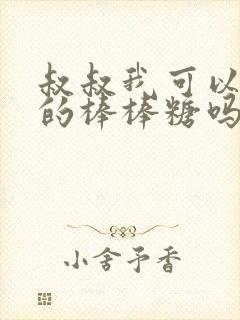 叔叔我可以
的棒棒糖吗
小舍予香